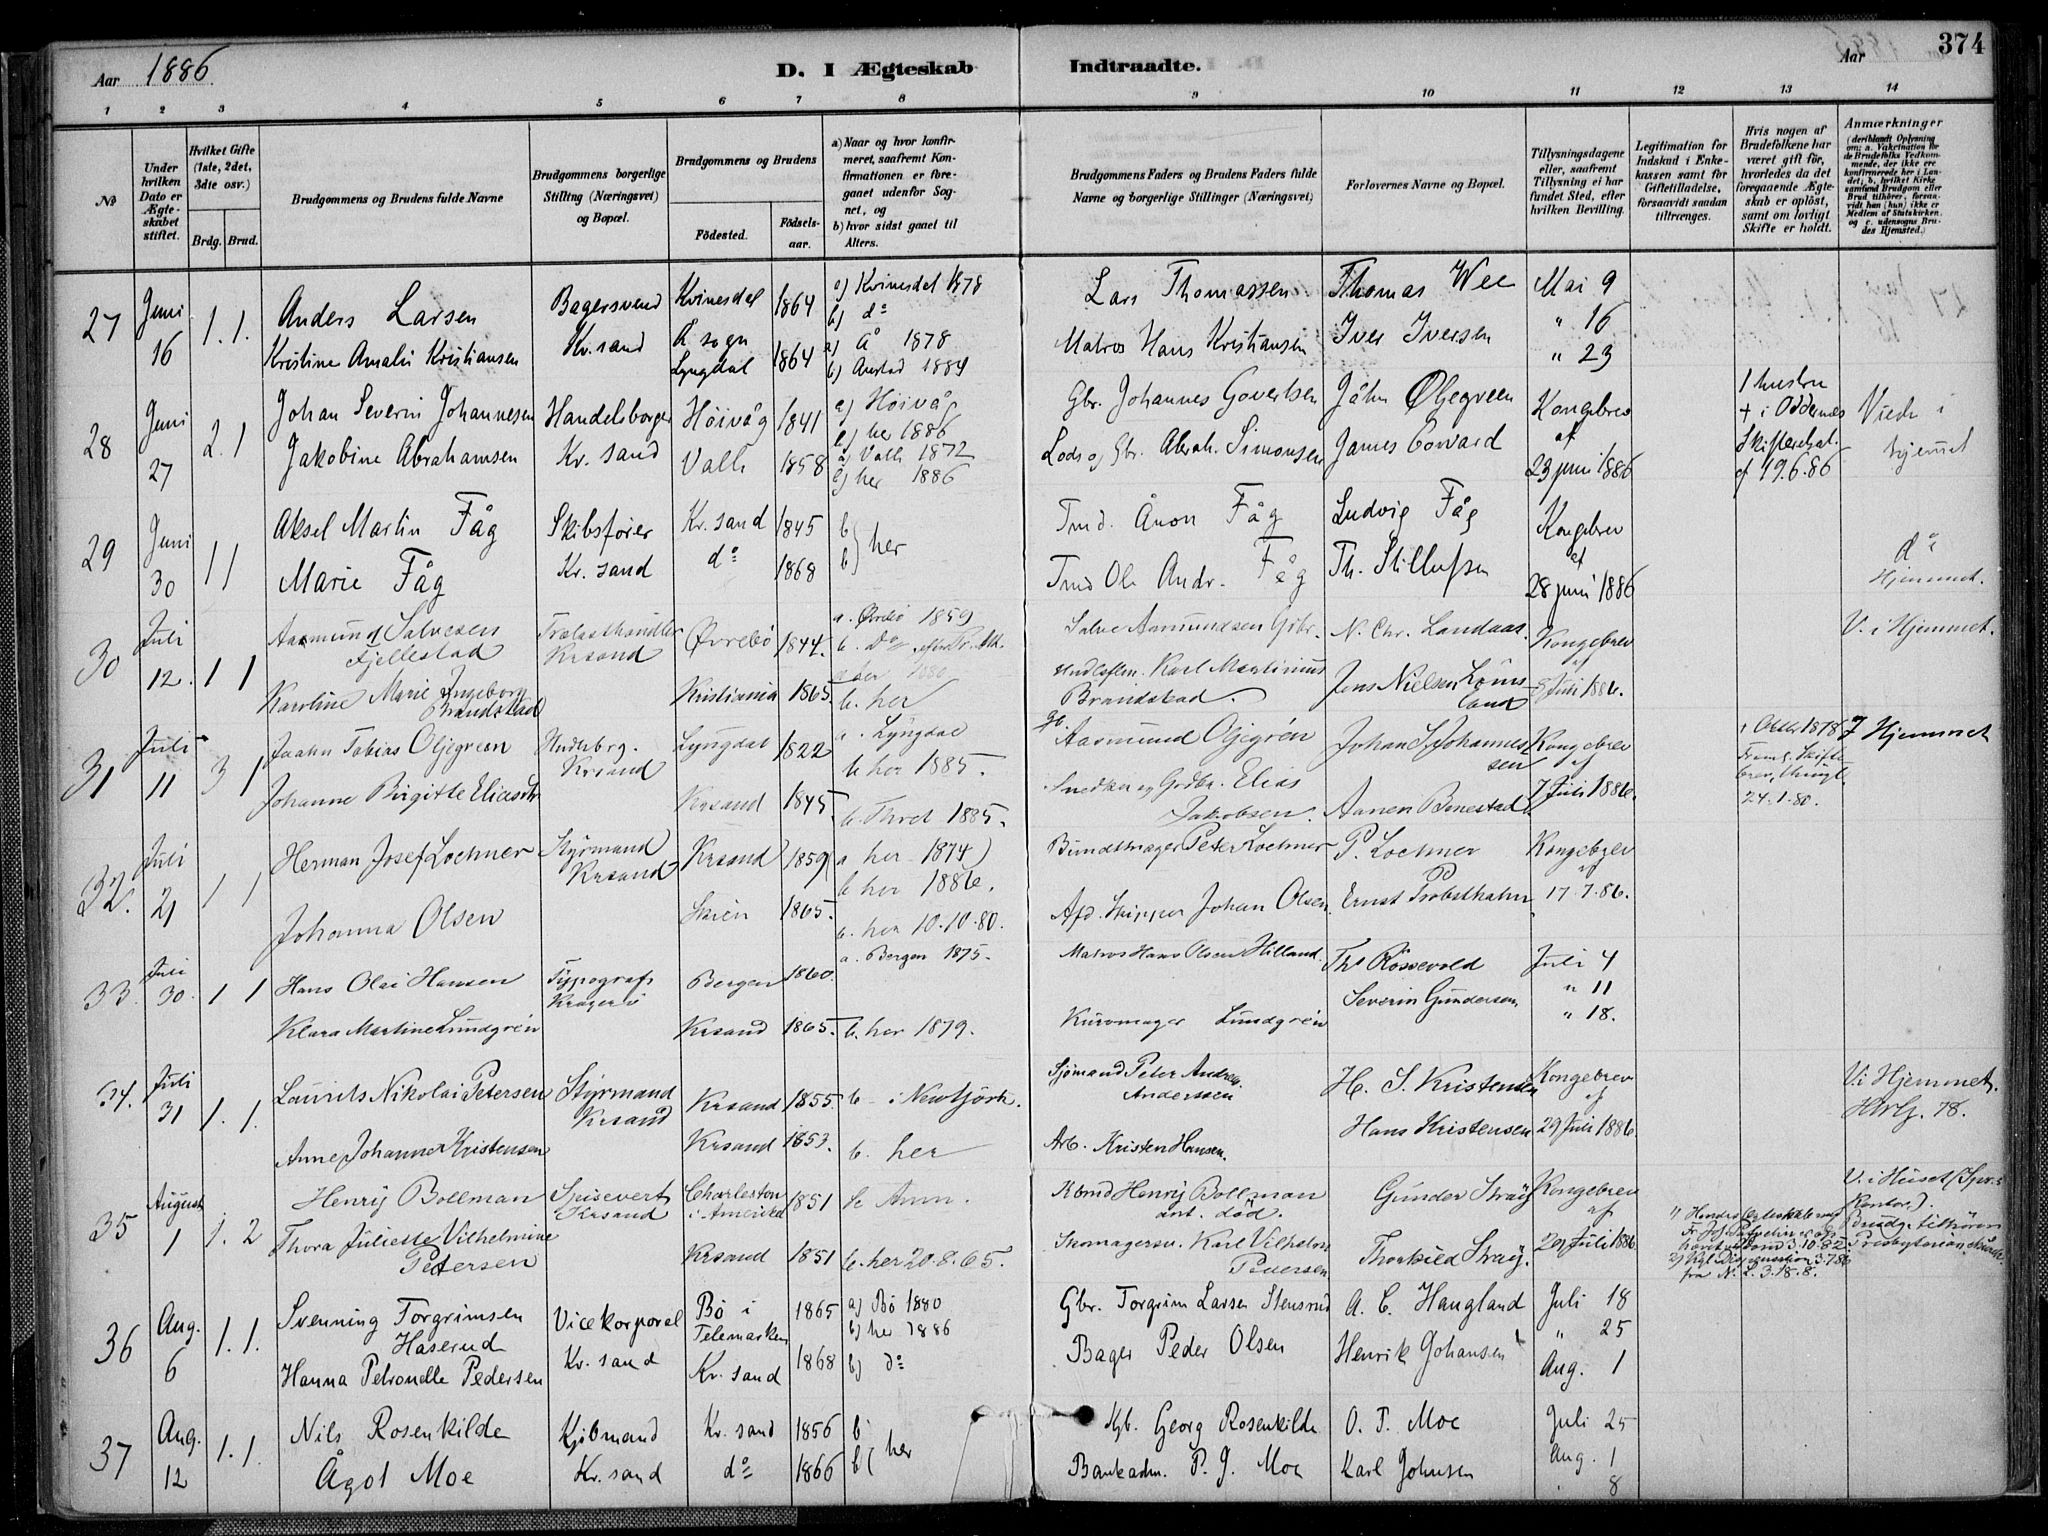 Aar 1886.
D. I Ægteskab Indtraadte.
Aar
374
1 2 3 4 5 6 7 8 9 10 11 12 13 14
No
Under hvilken Dato er Ægteskabet stiftet.
Hvilket Gifte (1ste, 2det, 3die osv.)
Brdg. Brud.
Brudgommens og Brudens fulde Navne
Brudgommens borgerlige Stilling (Næringsvei) og Bopæl.
Brudgommens og Brudens
Födested.
Födselsaar.
a) Naar og hvor konfirmeret, saafremt Konfirmationen er foregaaet udenfor Sognet, og
b) hvor sidst gaaet til Alters.
Brudgommens Faders og Brudens Faders fulde Navne og borgerlige Stillinger (Næringsvei)
Forlovernes Navne og Bopæl.
Tillysningsdagene eller, saafremt Tillysning ei har fundet Sted, efter hvilken Bevilling.
Legitimation for Indskud i Enkekassen samt for Giftetilladelse, forsaavidt saadan tiltrænges.
Hvis nogen af Brudefolkene har været gift för, hvorledes da det foregaaende Ægteskab er oplöst, samt om lovligt Skifte er holdt.
Anmærkninger
(deriblandt Oplysning om; a. Vakcination for de Brudefolks Vedkommende, der ikke ere konfirmerede her i Landet; b. hvilket Kirkesamfund Brudgom eller Brud tilhörer, forsaavidt han (hun) ikke er Medlem af Statskirken, og c. udensogns Brudes Hjemsted.)
27 Juni 16 1. 1. Anders Larsen Bagersvend Kr.sand Kvinesdal 1864 a) Kvinesdal 1878 b) do Lars Thomassen Thomas Wee Mai 9
Kristine Amalie Kristiansen Å sogn Lyngdal 1864 a) Å 1878 b) 1884 Matros Hans Kristiansen Iver Iversen " 16 " 23
28 Juni 27 2. 1 Johan Severin Johannesen Handelsborger Kr. sand Höivåg 1841 a) Höivåg b) her 1886 Gbr. Johannes Govertsen Jåhn Öljegreen Kongebrev af 23 juni 1886 1 hustru + i Oddernes Skifteretsat. af 19.6.86 Viede i hjemmet
Jakobine Abrahamsen Valle 1858 a) Valle 1872 b) her 1886 Lods og Gbr. Abrah. Simonsen James Coward
29 Juni 30 1 1 Aksel Martin Fåg Skibsfører Kr. sand Kr. sand 1845 b) her Tmd. Ånon Fåg Ludvig Fåg Kongebrev af 28 juni 1886 do Hjemmet.
Marie Fåg do 1868 b) Tmd Ole Andr. Fåg Th. Stillufsen
30 Juli 12. 1 1 Aasmund Salvesen Fjellestad Trælasthandler Krsand Øvrebö 1844. a. Øvrebö 1859 b. Do Salve Aasmundsen Grbr. N. Chr. Landaas Kongebrev af 8 Juli 1886. V. i Hjemmet.
Karoline Marie Ingeborg Brandstad Kristiania 1865. 1880 b. her Karl Martinius Brandskad. Jens Nielsen Lönsland
31 Juli 11 3 1 Jaahn Tobias Oljegreen Hndlsbrg. Krsand Lyngdal 1822 a. Lyngdal b her 1885. gb. Aasmund Oljegrén Johan S. Johannessen Kongebrev af 7 Juli 1886. Oktbr 1878 24.1.80. I Hjemmet
Johanne Birgitte Eliasdtr Krsand 1845. b. 1885. Snedker og Grdbr. Elias Jakobsen. Aanen Benestad
32. Juli 21 1 1 Herman Josef Lochner Styrmand Krsand Krsand 1859 a her 1874) b her 1886. Bundtmager Peter Lochner P. Lochner Kongebrev af 17.7.86.
Johanna Olsen Skien 1865. b. her 10.10.80. Afd. Skipper Johan Olsen. Ernst Probsthahn
33. Juli 30. 1 1 Hans Olai Hansen Typograf Kragerö Bergen 1860. a. Bergen 1875. Matros Hans Olsen Hilland. Ths Rössevold Juli 4
Klara Martine Lundgrén Krsand 1865. b. her 1879. Kuromager Lundgrén Severin Gundersen " 11 " 18.
34. Juli 31 1. 1. Laurits Nikolai Petersen Styrmand Krsand Krsand 1855. b. i New York. Sjömand Peter Andrea. Anderssen H. S. Kristensen Kongebrev af 29 Juli 1886. V. i Hjemmet. 78.
Anne Johanne Kristensen Krsand 1853. b. her Arb. Kristen Hansen. Hans Kristensen
35 August 1 1. 2 Henrij Bollman Spisevert Krsand Charleston i Amerika 1851 b. Am. Kbmd Henrij Bollman ant. död. Gunder Straij Kongebrev af 29 Juli 1886 V. i Huset Kontor.). Brudg. tilhörer Presbyterian.
Thora Juliette Vilhelmine Petersen Krsand 1851 b. her 20.8.65. Skomagersv. Karl Vilhelm Petersen Thorkild Straij.
36 Aug. 6 1. 1. Svenning Torgrimsen Haserud Vicekorporal Kr. sand Bö i Telemarken 1865 a) Bö 1880 b) her 1886 Gbr. Torgrim Larsen Stensrud A. C. Haugland Juli 18
Hanna Petronelle Pedersen Kr. sand 1868 b) do Bager Peder Olsen Henrik Johansen " 25 Aug. 1
37 Aug. 12 1. 1. Nils Rosenkilde Kjöbmand Kr. sand Kr. sand 1856 b) her Kjb. Georg Rosenkilde O. T. Moe Juli 25
Ågot Moe do 1866 b) Bankadm. P. G. Moe Karl Johnsen Aug. 1 " 8